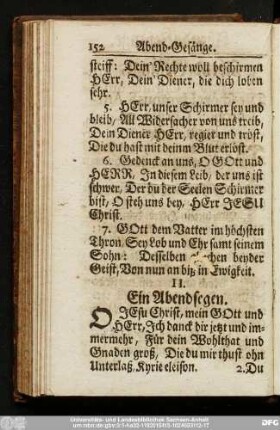 152 Abend-Gesänge.
steiff: Dein Rechte woll beschirmen
HErr, Dein Diener, die dich lobrn
sehr.
5. HErr, unser Schirmer sey und
bleib, All Widersacher von uns treib,
Dein Diener HErr, regier und tröst,
Die du hast mit deinm Blut erlöst.
6. Gedenck an uns, O GOtt und
HERR, In diesem Leib, der uns ist
schwer, Der du der Seelen Schirmer
bist, O steh uns bey, HErr JESU
Christ.
7. GOtt dem Vatter im höchsten
Thron, Sey Lob und Ehr samt seinem
Sohn: Desselben gleichen beyder
Geist, Von nun an biß in Ewigkeit.
II.
Ein Abendsegen.
O JEsu Christ, mein GOtt und
HErr, Jch danck dir jetzt und im-
mermehr, Für dein Wohlthat und
Gnaden groß, Die du mir thust ohn
Unterlaß, Kyrie eleison. 2. Du
Universitäts- und Landesbibliothek Sachsen-Anhalt